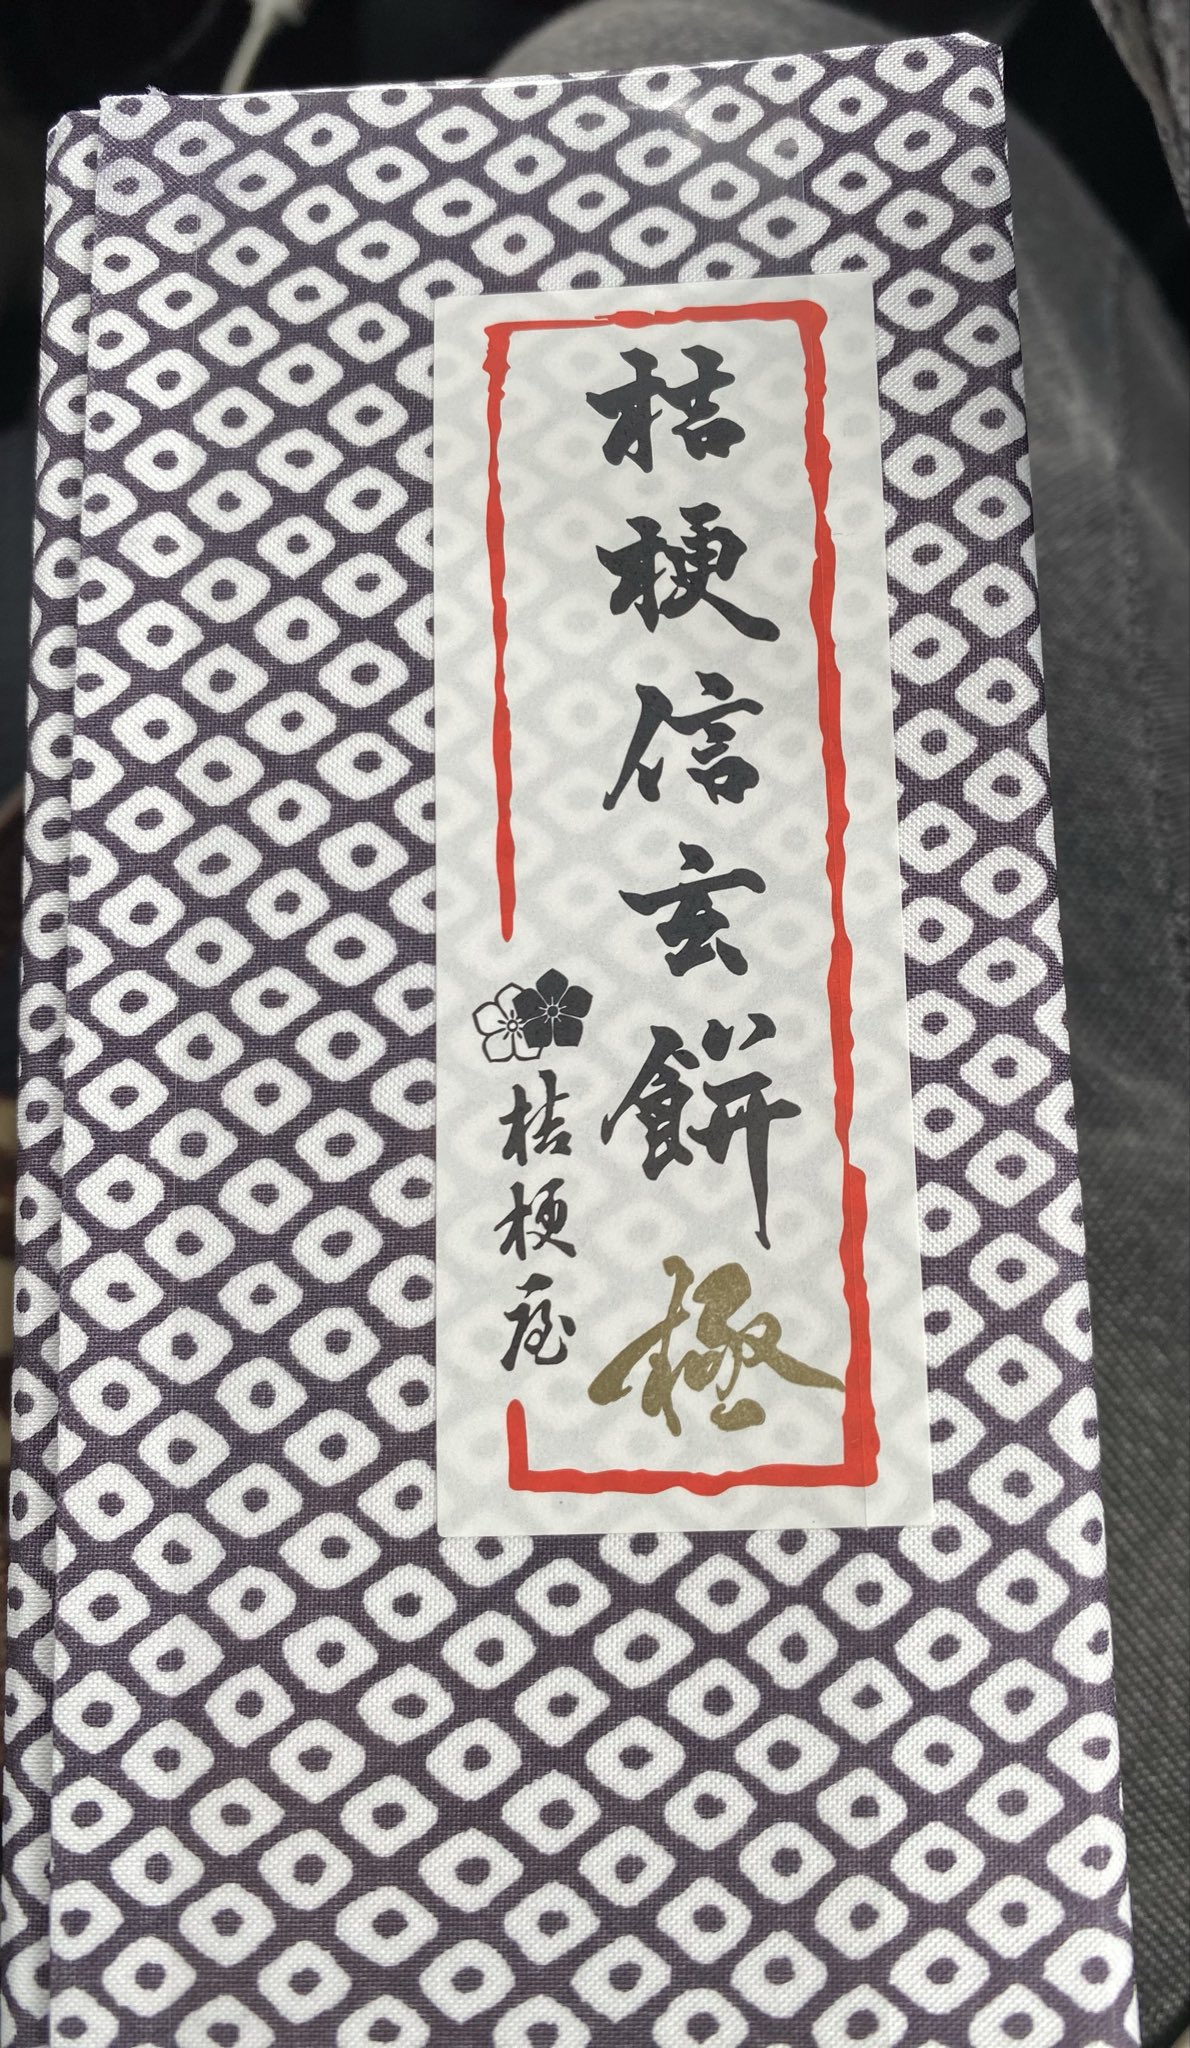 桔梗信玄餅 極
桔梗屋